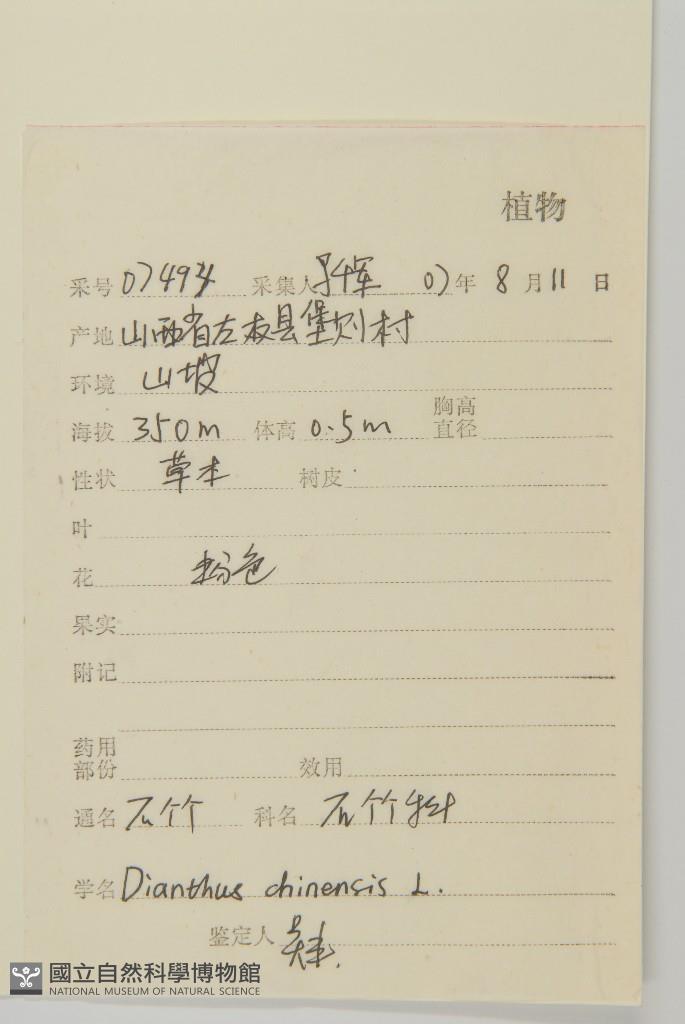 植物
采号 07493 采集人 07年 8月11日
产地 山西省左权县堡则村
环境 山坡
海拔 350m 体高 0.5m 胸高直径
性状 草本 树皮
叶
花 粉色
果实
附记
药用部份 效用
通名 石竹 科名 石竹科
学名 Dianthus chinensis L.
鉴定人
國立自然科學博物館
NATIONAL MUSEUM OF NATURAL SCIENCE